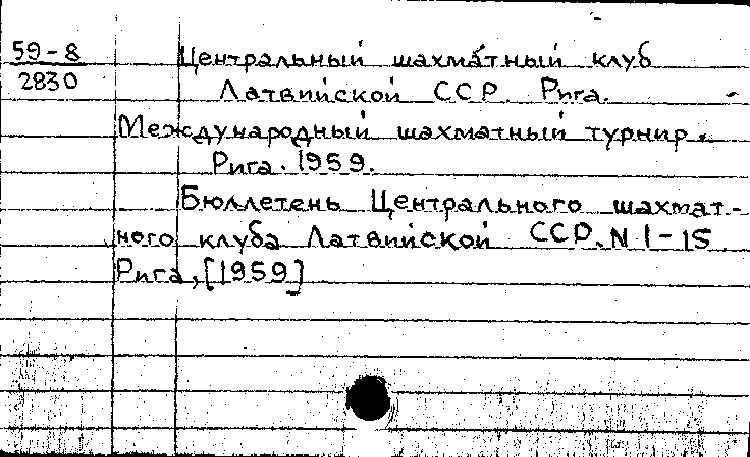 59-8
2830
Центральный шахматный клуб
Латвийской ССР. Рига.
Международный шахматный турнир.
Рига. 1959.
Бюллетень Центрального шахмат-
ного клуба Латвийской ССР. N 1-15
Рига, [1959]